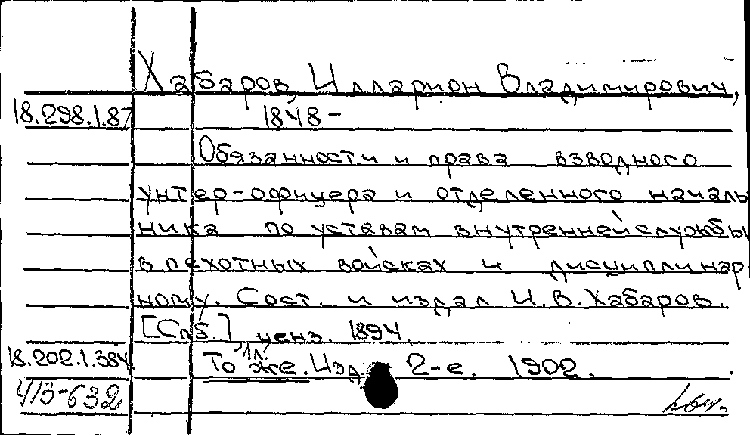 Хабаров, Илларион Владимирович,
18.298.1.87 1848-
Обязанности и права взводного
унтер-офицера и отделенного началь
ника по уставам внутренней службы
в пехотных войсках и дисциплинар
ному. Сост. и издал И.В. Хабаров.
[Спб.] ценз. 1894.
18.202.1.384 То же. Изд. 2-е. 1902.
413-632